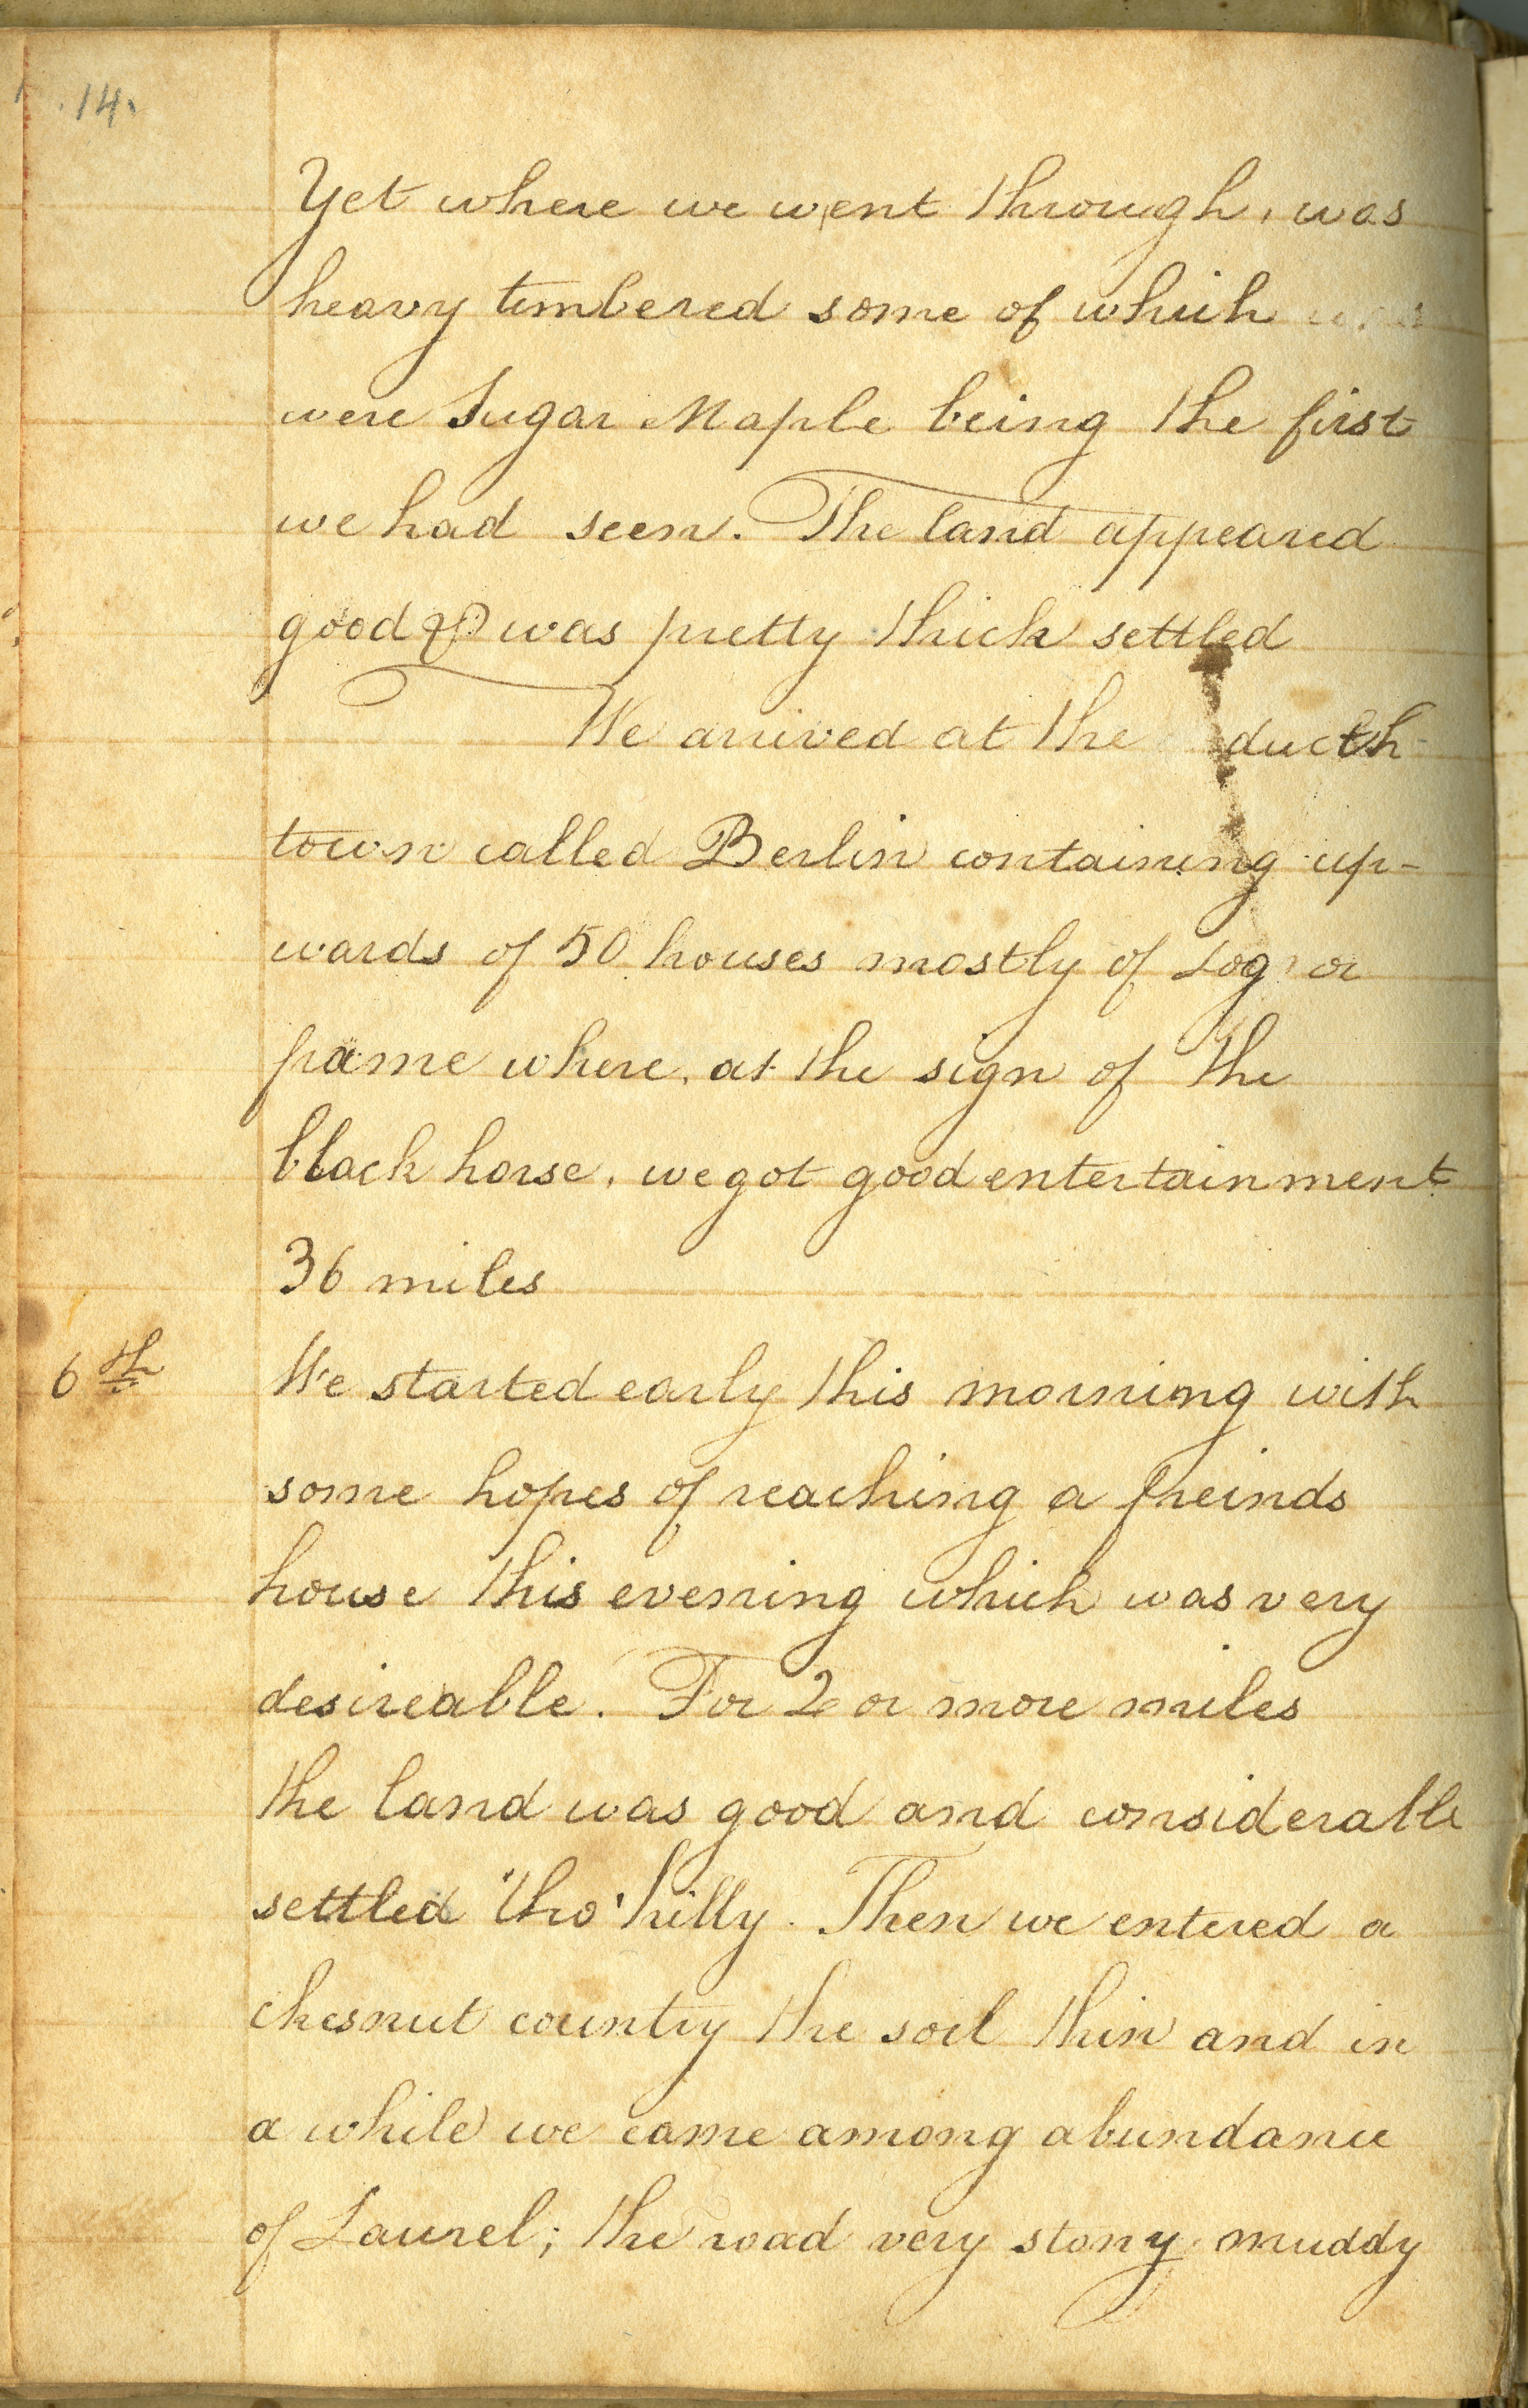 14.
Yet where we went through, was
heavy timbered some of which was
were Sugar Maple being the first
we had seen. The land appeared
good & was pretty thick settled
We arrived at the ducth
town called Berlin containing up-
wards of 50 houses mostly of Log or
frame where, at the sign of the
black horse, we got good entertainment
36 miles
6th We started early this morning with
some hopes of reaching a freinds
house this evening which was very
desireable. For 2 or more miles
the land was good and considerable
settled tho' hilly. Then we entered a
chesnut country the soil thin and in
a while we came among abundance
of Laurel; the road very stony muddy